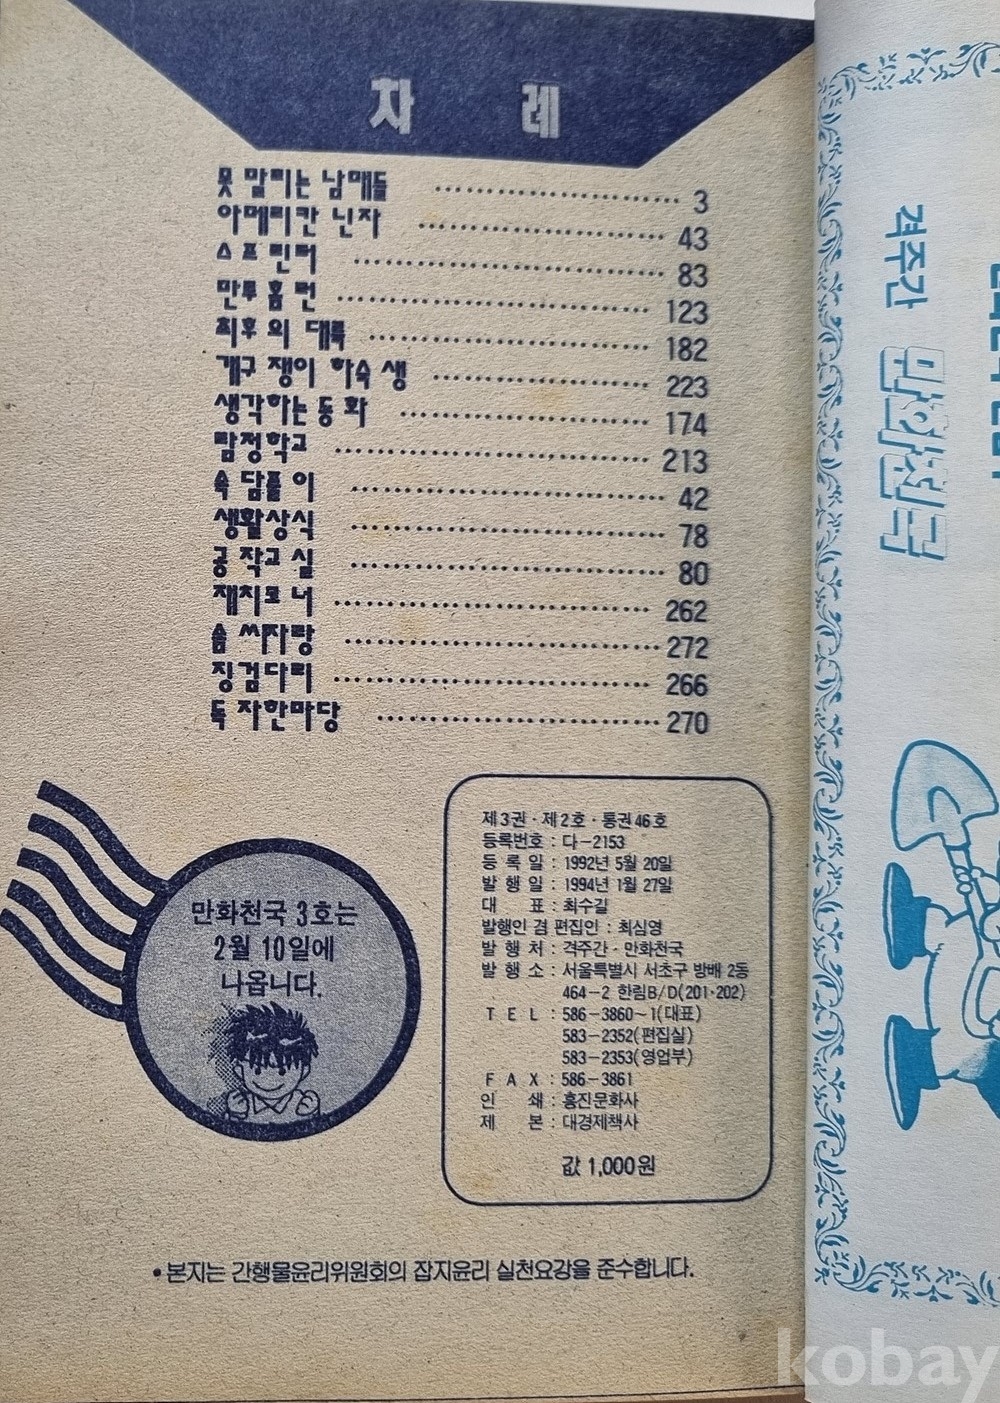 차 례
못 말리는 남매들 3
아메리칸 닌자 43
스프린터 83
만루 홈 런 123
최후의 대륙 182
개구 쟁이 하숙 생 223
생각하는 동 화 174
탐정학교 213
속 담풀 이 42
생활상식 78
공 작교 실 80
재치코 너 262
솜 씨자랑 272
징검다리 266
독 자한마당 270
만화천국 3호는
2월 10일에
나옵니다.
제3권 · 제2호 · 통권 46호
등록번호 : 다-2153
등 록 일 : 1992년 5월 20일
발 행 일 : 1994년 1월 27일
대 표 : 최수길
발행인 겸 편집인 : 최심영
발 행 처 : 격주간 · 만화천국
발 행 소 : 서울특별시 서초구 방배 2동
464-2 한림B/D(201·202)
T E L : 586-3860~1(대표)
583-2352(편집실)
583-2353(영업부)
F A X : 586-3861
인 쇄 : 흥진문화사
제 본 : 대경제책사
값 1,000원
• 본지는 간행물윤리위원회의 잡지윤리 실천요강을 준수합니다.
격주간 만화천국
kobay